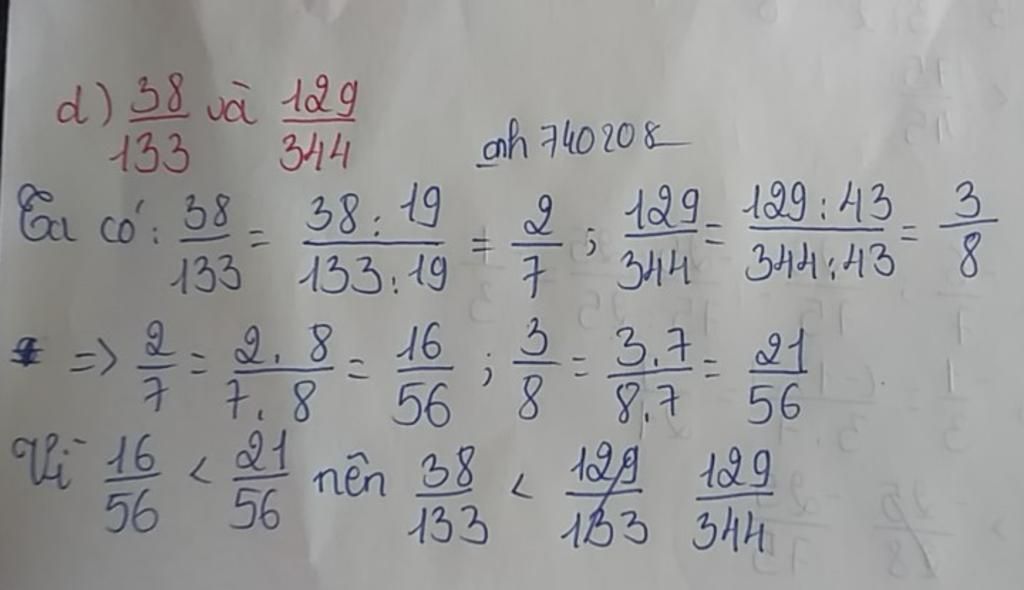 d) 38/133 và 129/344
anh 740208
Ta có: 38/133 = 38:19/133:19 = 2/7; 129/344 = 129:43/344:43 = 3/8
=> 2/7 = 2.8/7.8 = 16/56; 3/8 = 3.7/8.7 = 21/56
Vì 16/56 < 21/56 nên 38/133 < 129/133 129/344